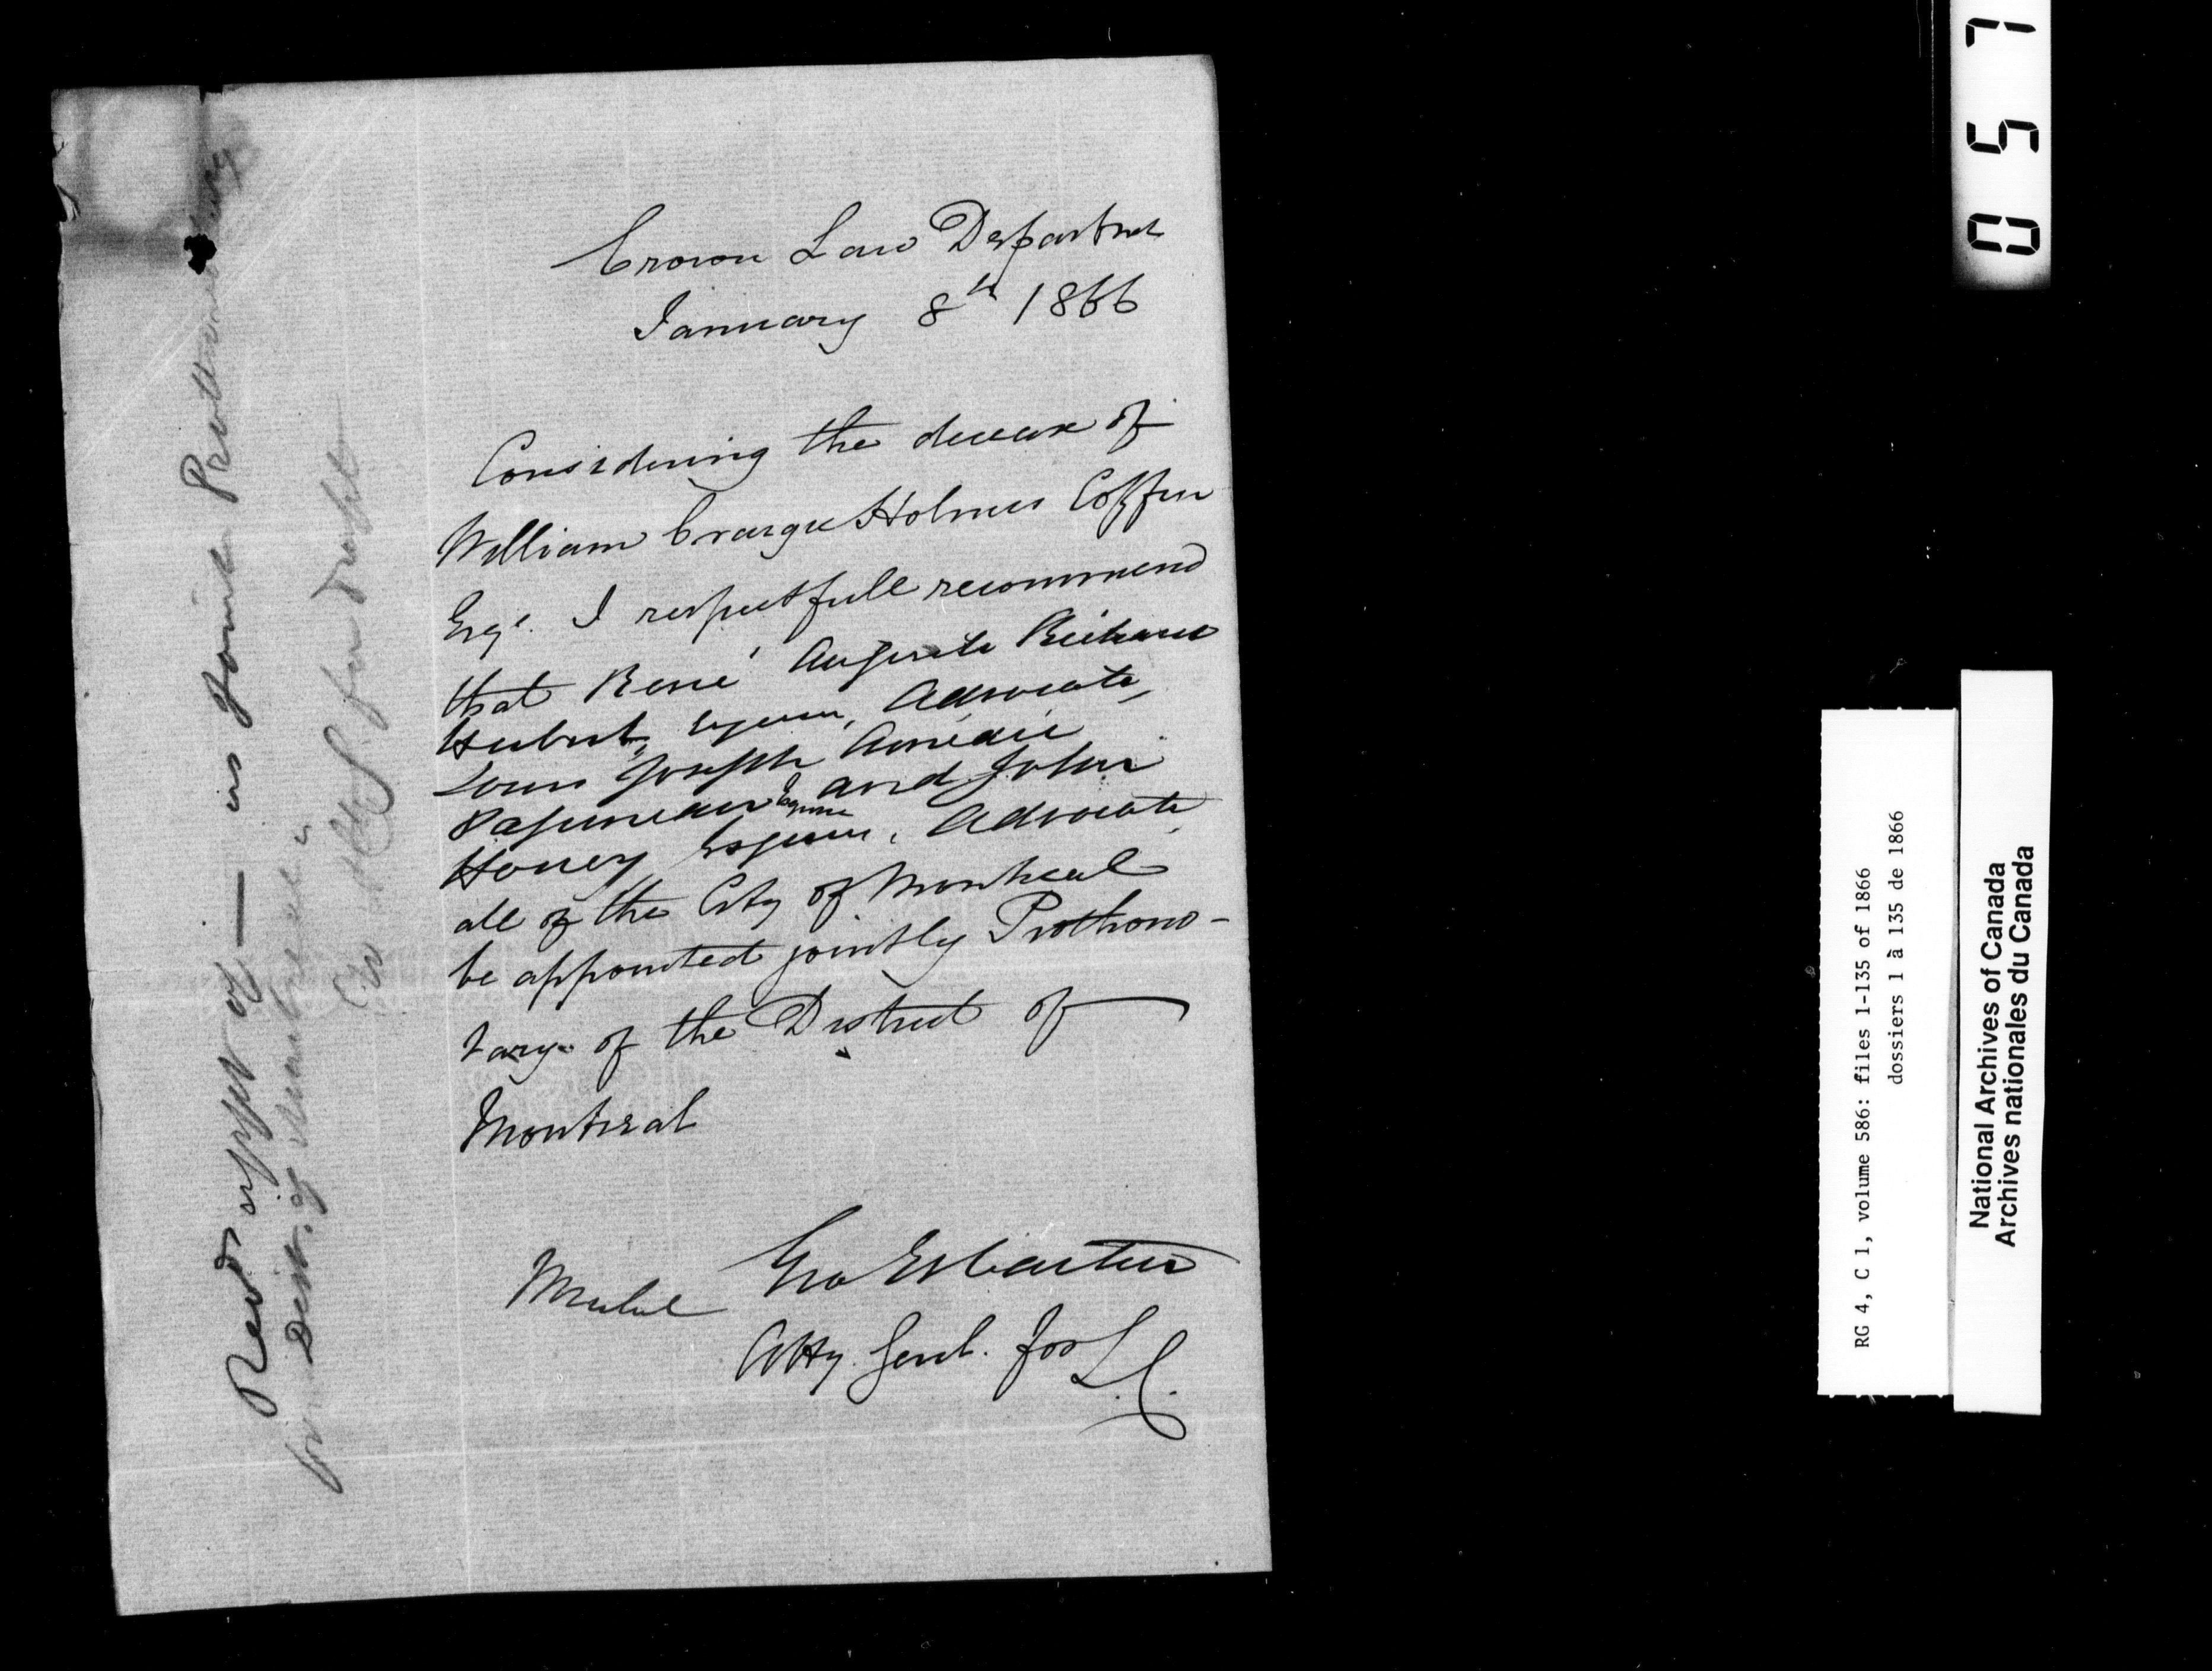 Crown Law Departmt
January 8th 1866
Considering the decease of
William Craigie Holmes Coffin
Esqr. I respectfull recommend
that René Auguste Richard
Hubert, Esquire, Advocate,
Louis Joseph Amédée
Papineau Esquire and John
Honey Esquire, Advocate
all of the City of Montreal
be appointed jointly Prothono-
tary of the District of
Montreal
Geo Et Cartier
Atty. Genl. for L.C.
appt of — as Joint Prothonotary
for Dist. of Montreal
for draft
0 5 7
RG 4, C 1, volume 586: files 1-135 of 1866
dossiers 1 à 135 de 1866
National Archives of Canada
Archives nationales du Canada